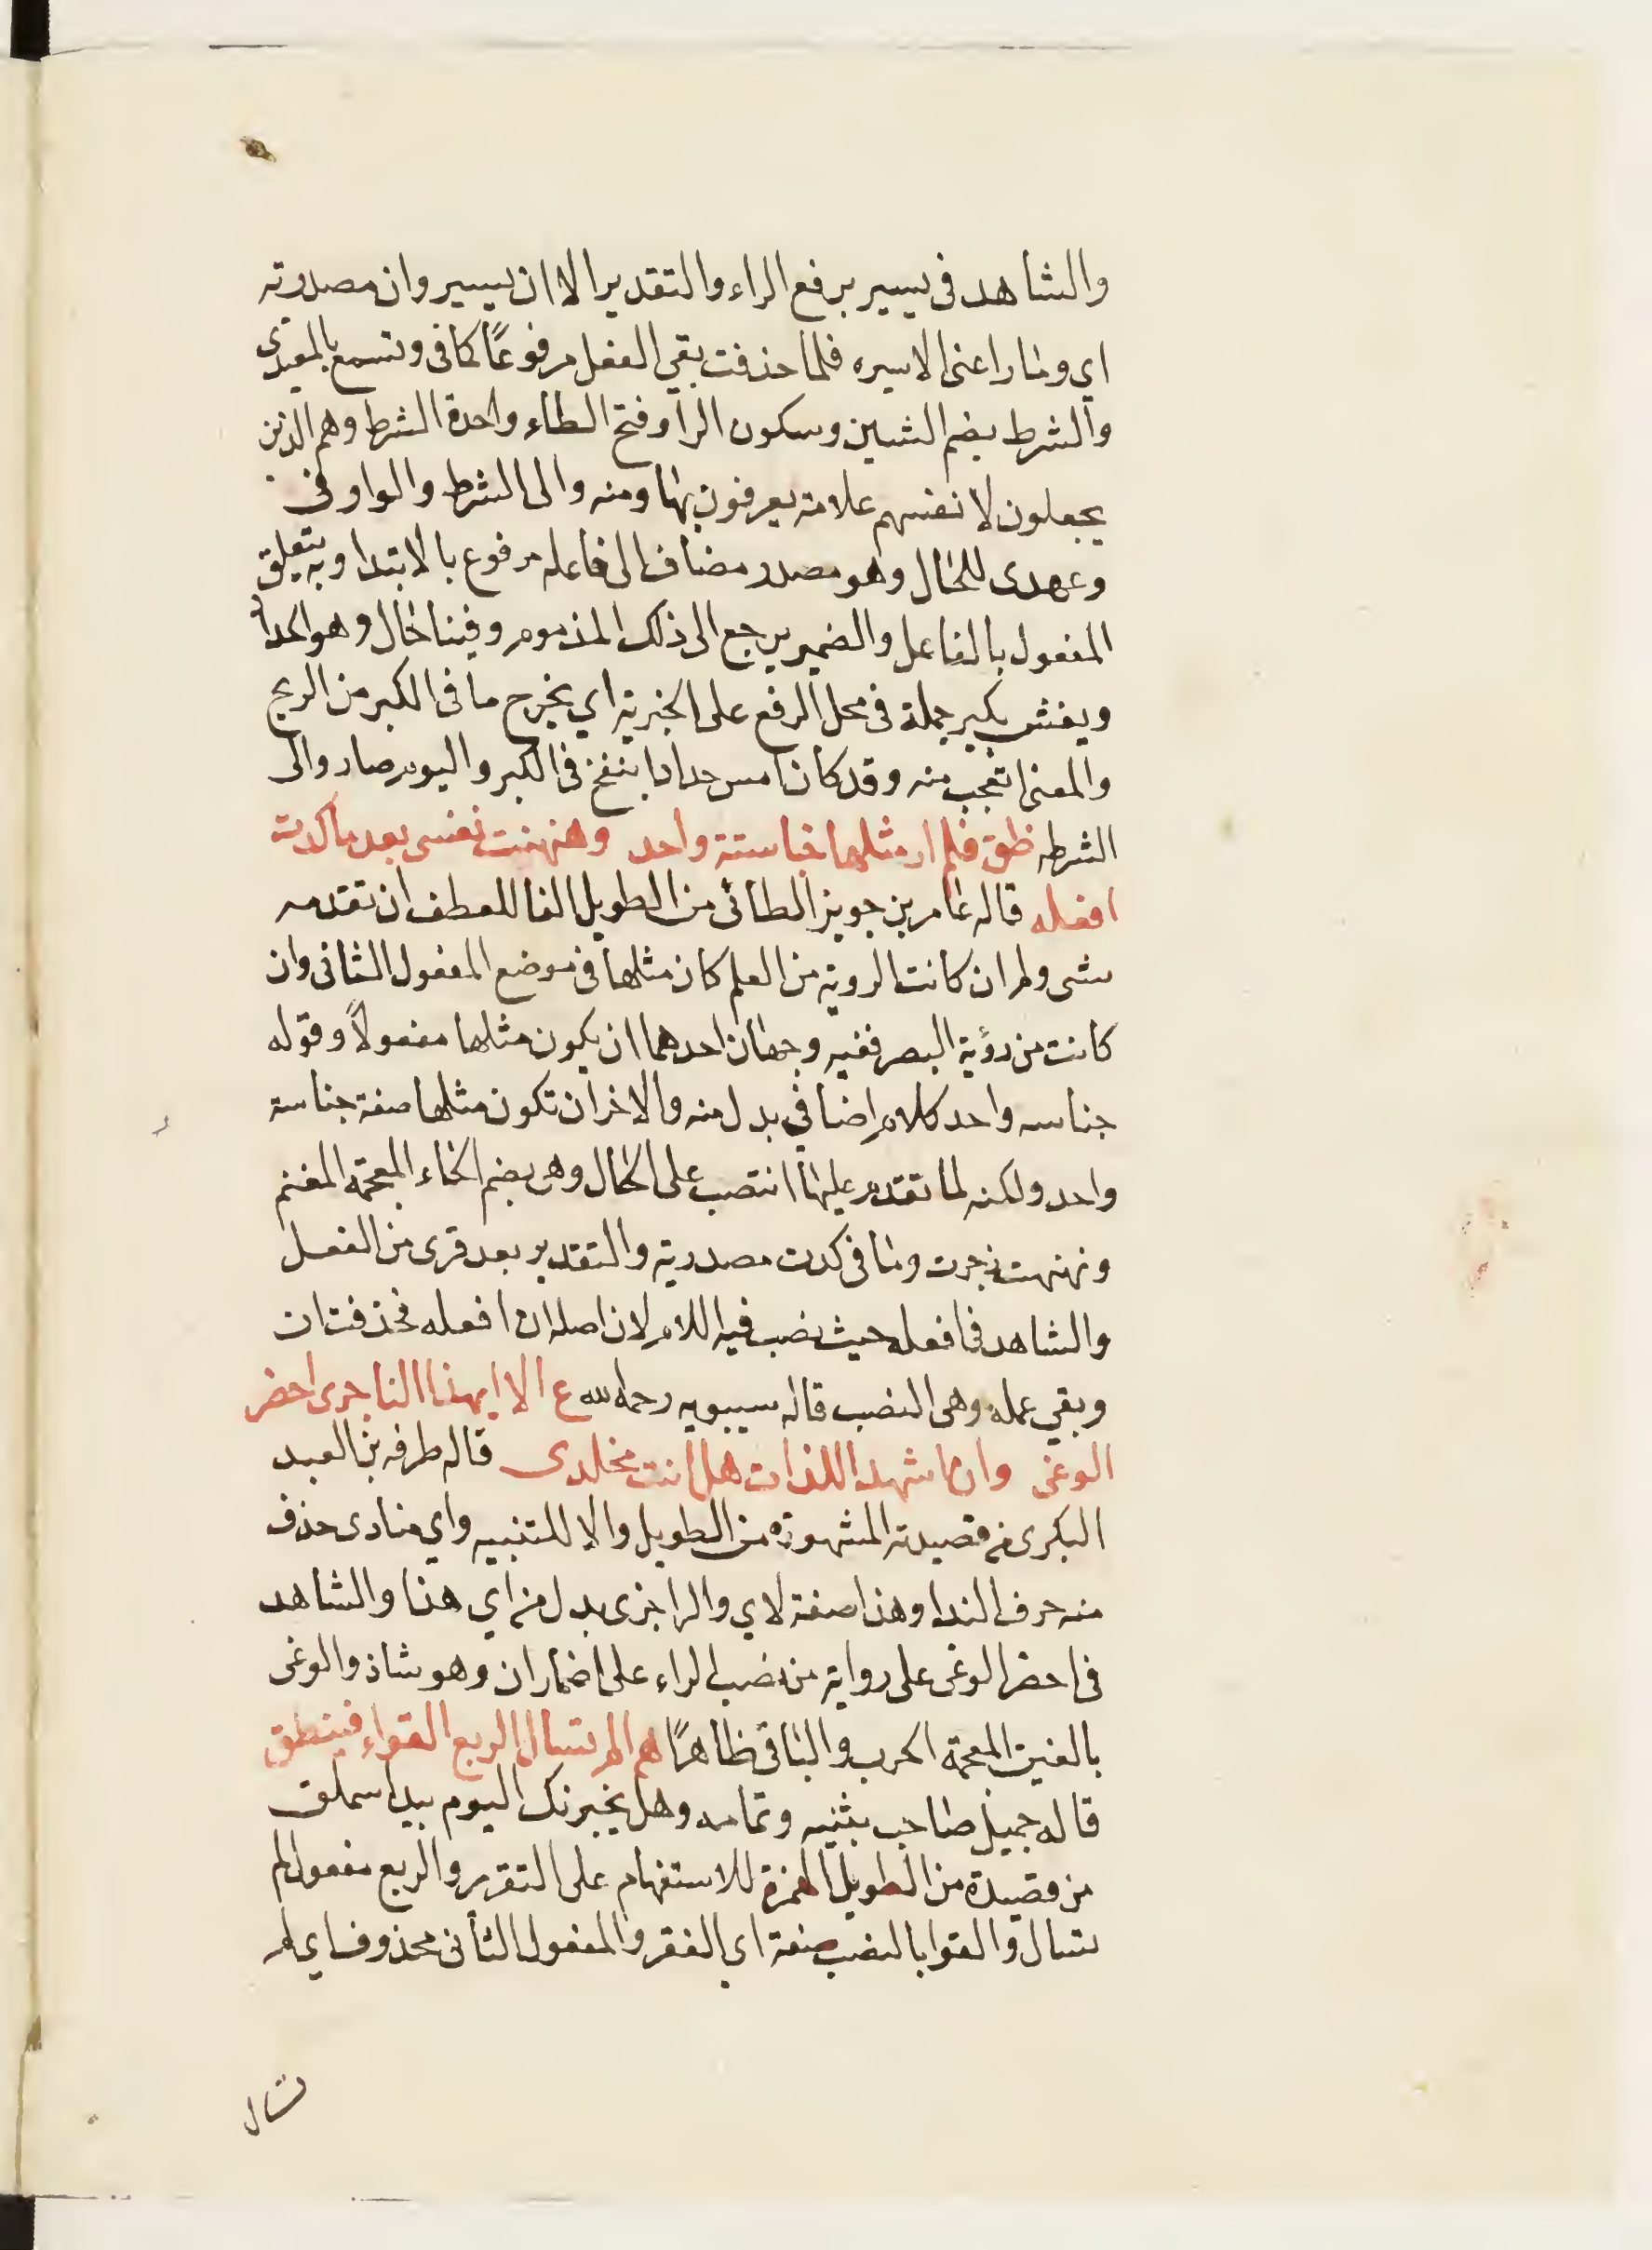 والشاهد في يسير برفع الراء والتقدير الا ان يسير وان مصدرته
اي وما راعني الا سيره فلما حذفت بقي الفعل مرفوعًا كما في وتسمع بالمعيدي
والشرط بضم الشين وسكون الرا وفتح الطاء واحدة الشرط وهم الذين
يجعلون لانفسهم علامة يعرفون بها ومنه والى الشرط والواو في
وعهدى للحال وهو مصدر مضاف الى فاعله مرفوع بالابتدا وبه يتعلق
المفعول بالفاعل والضمير يرجع الى ذلك المذموم وفينا حال وهو
ويفش بكير جملة في محل الرفع على الخبرية اي يخرج ما في الكير من الريح
والمعنى اتعجب منه وقد كان امس حدادا ينفخ في الكير واليوم صار والى
الشرطه ظق فلم ار مثلها خباسة واحد ونهنهت نفسى بعد ما كدت
افعله قاله عامر بن جوين الطائي من الطويل الفا للعطف ان تقدمه
شى ولم ان كانت الروية من العلم كان مثلها في موضع المفعول الثاني وان
كانت من رؤية البصر ففيه وجهان احدهما ان يكون مثلها مفعولاً وقوله
جناسه واحد كلام اضافي بدل منه والاخر ان تكون مثلها صفة جناسة
واحد ولكنه لما تقدم عليها انتصب على الحال وهى بضم الخاء المعجمة المغنم
ونهنهت زجرت وما في كدت مصدرية والتقدير بعد قربى من الفعل
والشاهد في افعله حيث نصب فيه اللام لان اصله ان افعله فحذفت ان
وبقي عمله وهى النصب قاله سيبويه رحمه الله ع الا ايهذا الزاجرى احضر
الوغى وان اشهد اللذات هل انت مخلدى قاله طرفه بن العبد
البكرى من قصيدته المشهورة من الطويل والا للتنبيه واي منادى حذف
منه حرف الندا وهذا صفة لاي والزاجرى بدل من اي هذا والشاهد
في احضر الوغى على رواية من نصب الراء على اضمار ان وهو شاذ والوغى
بالغين المعجمة الحرب والباقي ظاهرًا هم الم تسال الربع القواء فينطق
قاله جميل صاحب بثينه وتمامه وهل يخبرنك اليوم بيدا سملق
من قصيدة من الطويل الهمزة للاستفهام على التقرير والربع مفعول لم
تسال والقوا بالنصب صفة اي الفقر والمفعول الثاني محذوف اي لم
تسال